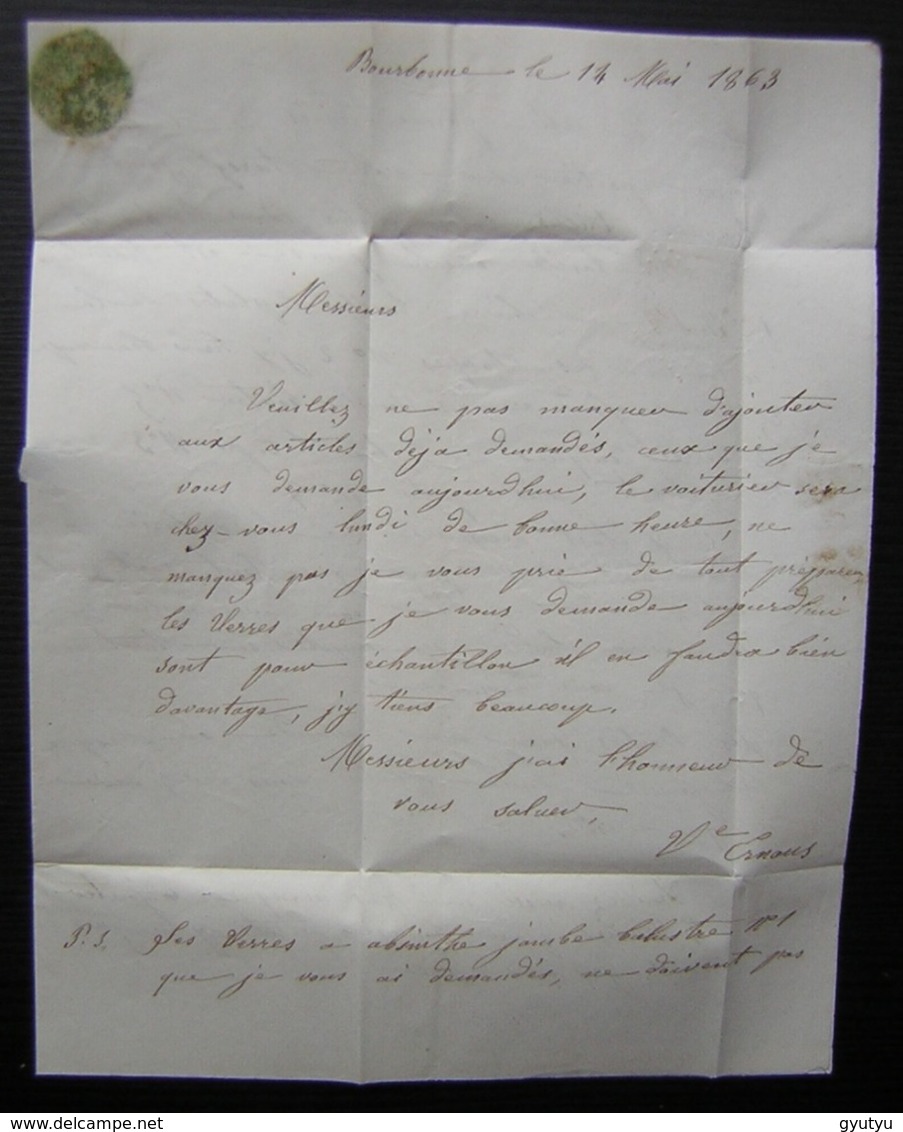 Bourbonne le 14 Mai 1863
Messieurs
Veuillez ne pas manquer d'ajouter
aux articles déja demandés, ceux que je
vous demande aujourdhui, le voiturier sera
chez-vous lundi de bonne heure, ne
manquez pas je vous prie de tout préparer
les Verres que je vous demande aujourdhui
sont pour échantillon il en faudra bien
davantage, j'y tiens beaucoup.
Messieurs j'ai l'honneur de
vous saluer,
Ve Ernous
P. S. Les Verres a absinthe jambe balustre No 1
que je vous ai demandés, ne doivent pas
delcampe.net
gyutyu